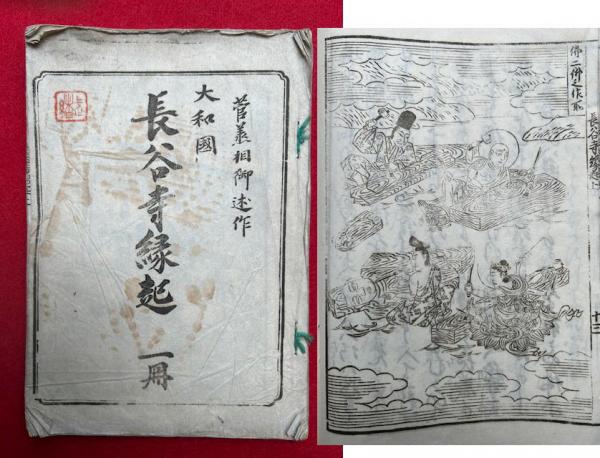 菅丞相御述作
大和國
長谷寺縁起
一冊
佛二佛之作所
長谷寺縁起上
十三